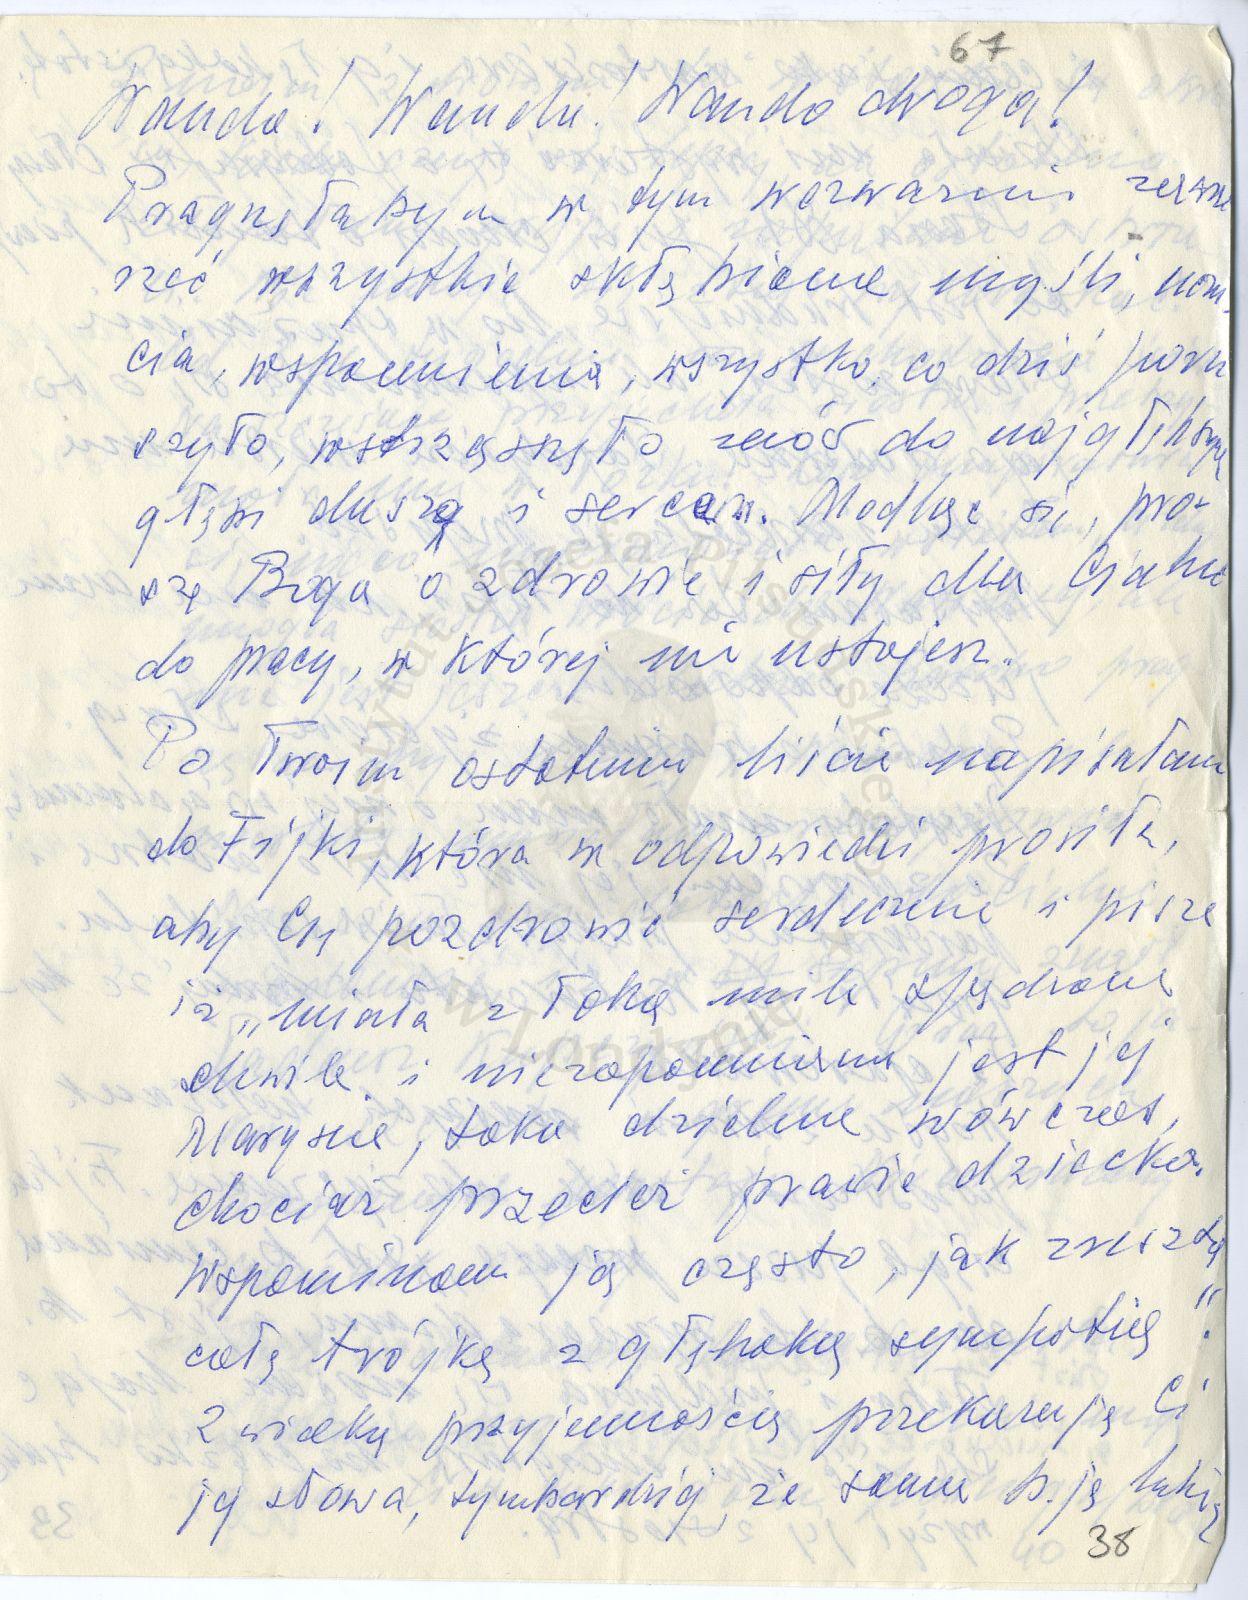 67
Wando! Wando! Wando droga!
Pragnęłabym w tym wezwaniu zawrzeć
rzeć wszystkie skłębione myśli,
cia, wspomnienia, wszystko, co dziś poru
szyło, wstrząsnęło znów do najgłębszej
głębi duszą i sercem. Modląc się, pro-
szę Boga o zdrowie i siły dla Ciebie
do pracy, w której nie ustajesz.
Po Twoim ostatnim liście napisałam
do Fijki, która w odpowiedzi prosiła,
aby Cię pozdrowić serdecznie i pisze
iż „miała z Toba mile spędzone
chwile i niezapomniana jest jej
Marysia, taka dzielna wówczas,
chociaż przecież prawie dziecko.
Wspominam ją często, jak zresztą
całą trójkę z głęboką sympatią".
Z wielką przyjemnością przekazuję Ci
jej słowa, tymbardziej, że sama b. ją lubię
38
Instytut Józefa Piłsudskiego
w Londynie